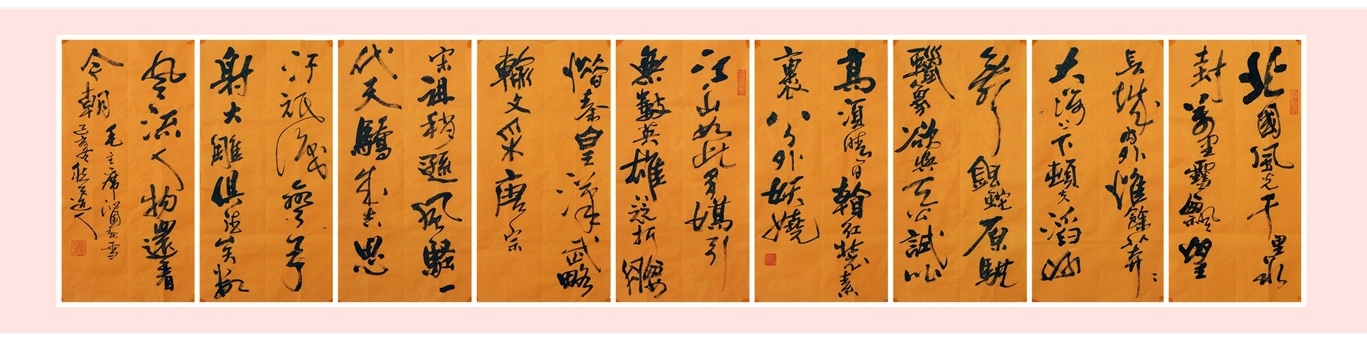 北國風光千里冰
封萬里雪飄望
長城內外惟餘莽〻
大河上下頓失滔滔
舞銀蛇原馳
蠟象欲與天公試比
高須晴日看紅裝素
裹分外妖嬈
江山如此多嬌引
無數英雄競折腰
惜秦皇漢武略
輸文采唐宗
宋祖稍遜風騷一
代天驕成吉思
汗祇識彎弓
射大雕俱往矣數
風流人物還看
今朝
毛主席沁園春雪
己亥